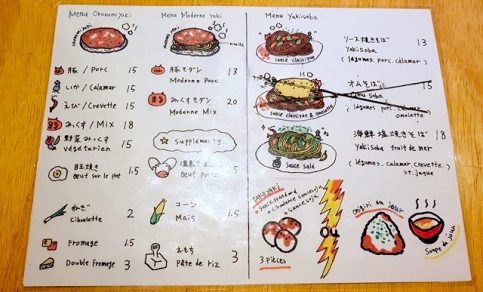 Menu Okonomiyaki
豚 / Porc 15
いか / Calamar 15
えび / Crevette 15
みっくす / Mix 18
野菜みっくす 15
végétarien
目玉焼き 1.5
œuf sur le plat
ねぎ 2
Cibulette
Fromage 1.5
Double fromage 3
Menu Moderne yaki
豚モダン 17
Moderne Porc
みっくすモダン 20
Moderne Mix
Suppléments
œuf 1.5
コーン 1.5
Mais
おもち 3
Pâte de riz
Menu Yakisoba
sauce classique
ソース焼きそば 13
Yakisoba
(légumes, porc, calamar)
sauce classique & omelette
オムそば 15
soba
(légumes, porc, calamar
omelette
sauce salé
海鮮塩焼きそば 18
Yakisoba fruit de mer
(légumes, calamar, crevette,
st. jaque
TAKOYAKI
sauce soja
3 pièces
OU
onigiri du jour
Soupe du jour